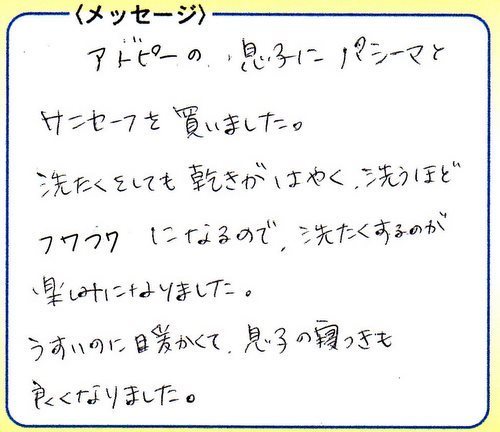 〈メッセージ〉
アトピーの息子にパシーマと
サニセーフを買いました。
洗たくをしても乾きがはやく、洗うほど
フワフワになるので、洗たくするのが
楽しみになりました。
うすいのに暖かくて、息子の寝つきも
良くなりました。